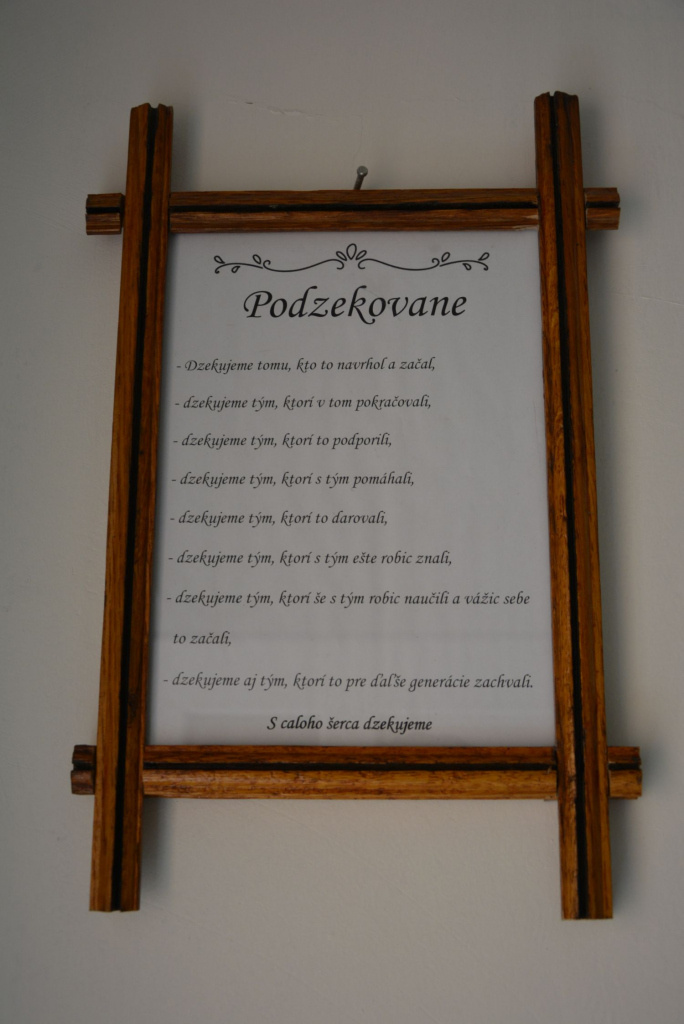 Podzekovane
- Dzekujeme tomu, kto to navrhol a začal,
- dzekujeme tým, ktorí v tom pokračovali,
- dzekujeme tým, ktorí to podporili,
- dzekujeme tým, ktorí s tým pomáhali,
- dzekujeme tým, ktorí to darovali,
- dzekujeme tým, ktorí s tým ešte robic znali,
- dzekujeme tým, ktorí še s tým robic naučili a vážic sebe
to začali,
- dzekujeme aj tým, ktorí to pre ďaľše generácie zachvali.
S caloho šerca dzekujeme